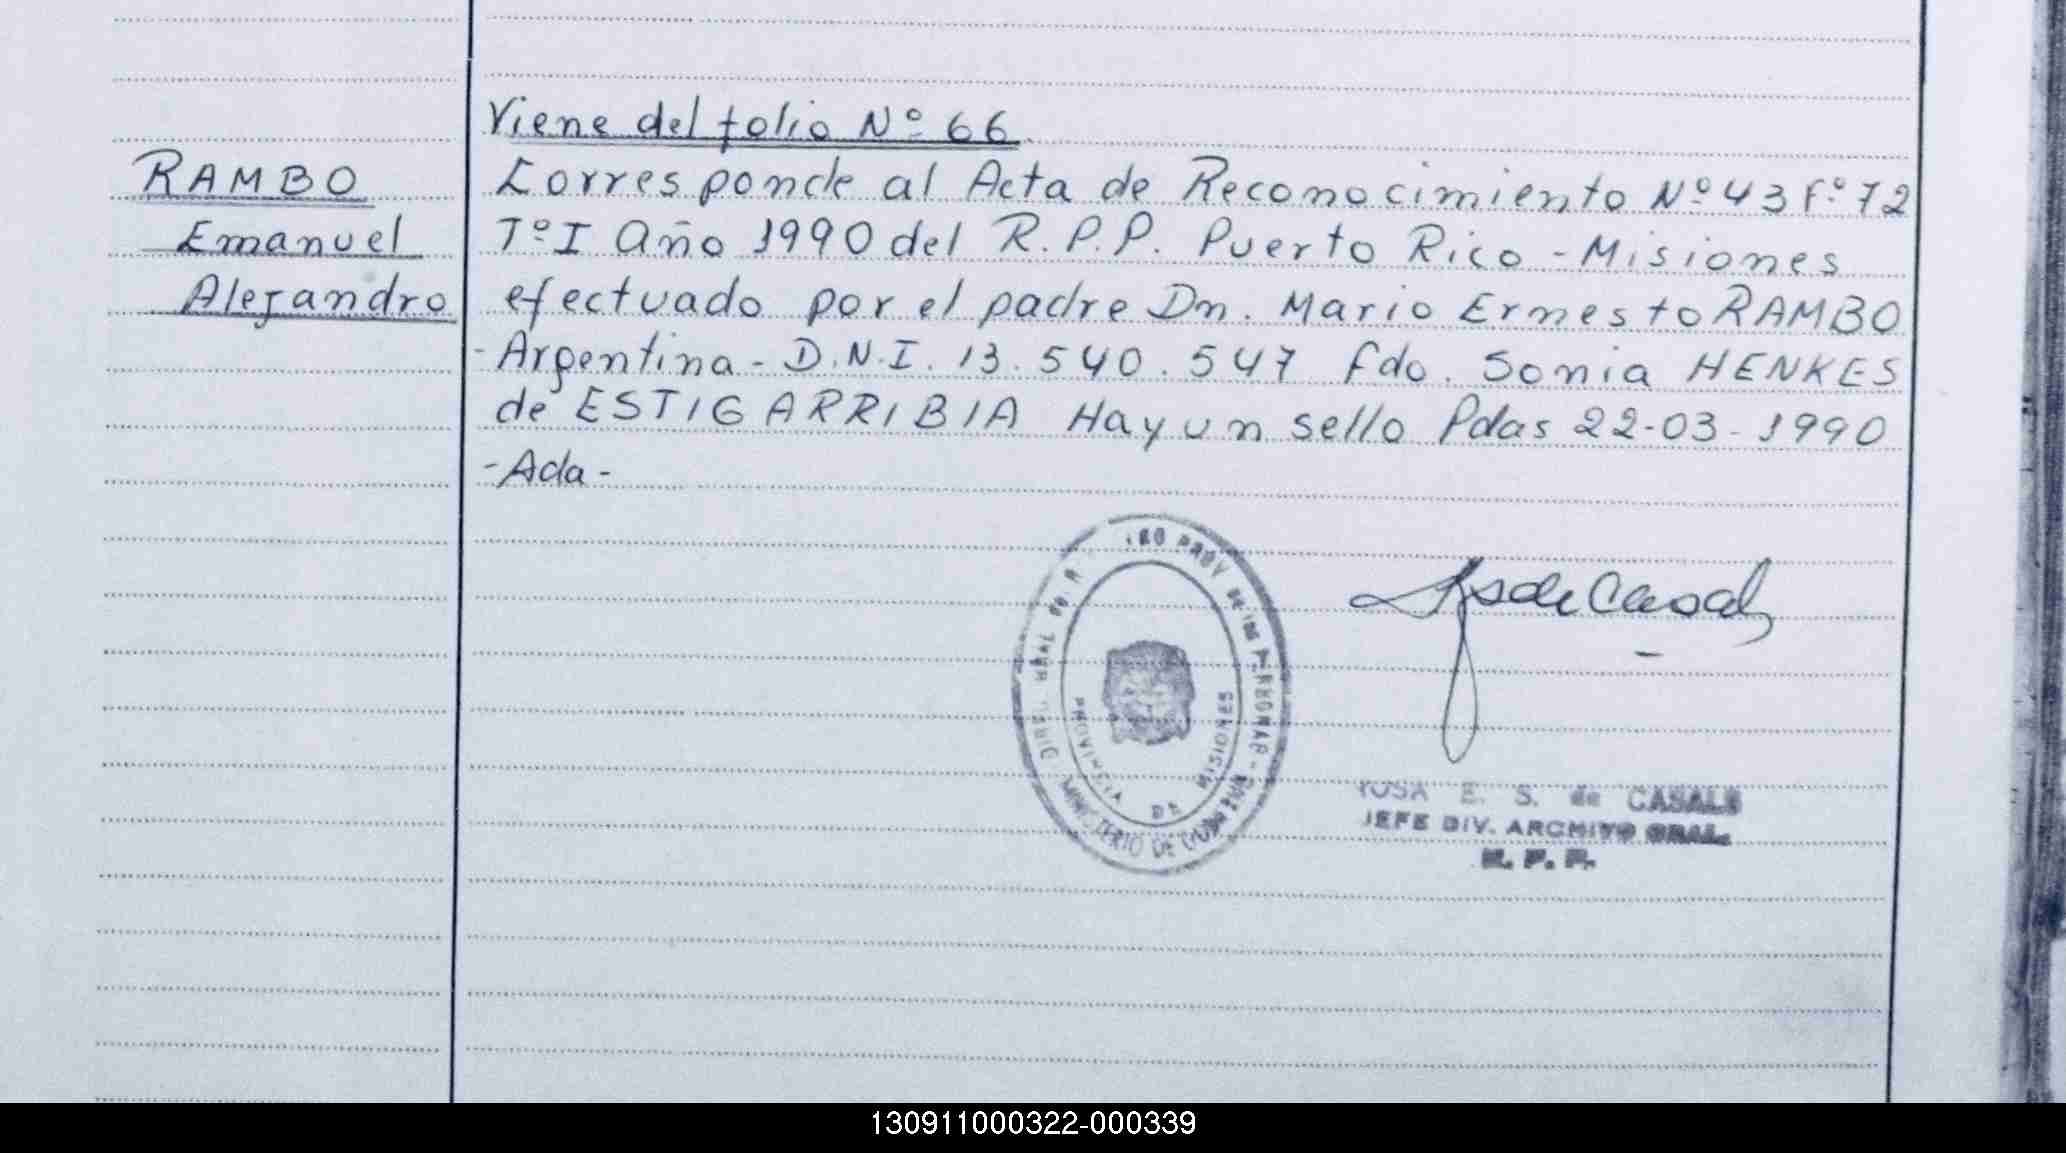 Viene del folio Nº 66
RAMBO
Emanuel
Alejandro
Corresponde al Acta de Reconocimiento Nº 43 Fº 72
Tº I Año 1990 del R.P.P. Puerto Rico - Misiones
efectuado por el padre Dn. Mario Ernesto RAMBO
-Argentina - D.N.I. 13.540.547 fdo. Sonia HENKES
de ESTIGARRIBIA Hay un sello Pdas 22-03-1990
-Ada-
PROV DE LAS PERSONAS
PROVINCIA DE MISIONES
MINISTERIO DE
de Casals
E. S. de CASALS
JEFE DIV. ARCHIVO GRAL.
R. P. P.
130911000322-000339